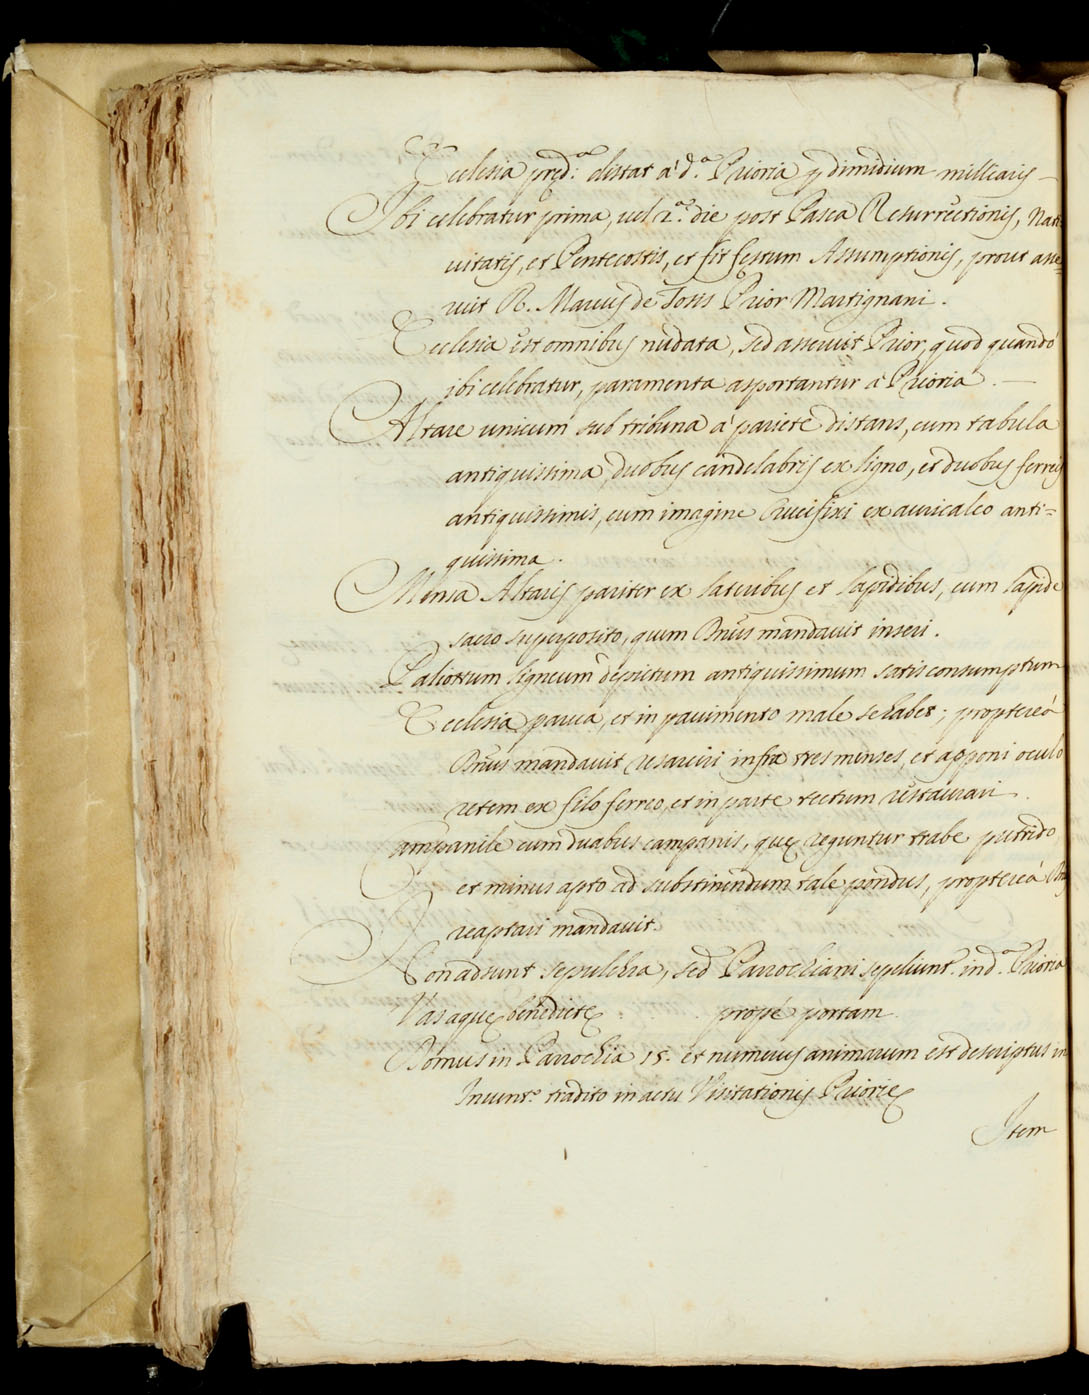 Ecclesia pred.a distat à d.a Prioria p dimidium milliaris
Ibi celebratur prima, vel 2.a die post Pasca Resurrectionis, Nati
vitatis, et Pentecostis, et fit festum Assumptionis, prout asse=
ruit R. Marcus de Tosis Prior Martignani.
Ecclesia est omnibus nudata, sed asseruit Prior, quod quandò
ibi celebratur, paramenta asportantur à Prioria.
Altare unicum sub tribuna à pariete distans, cum tabula
antiquissima, duobus candelabris ex ligno, et duobus ferreis
antiquissimis, cum imagine Crucifixi ex auricalco anti=
quissima.
Mensa Altaris pariter ex lateribus et lapidibus, cum lapide
sacro superposito, quem mandavit inseri.
Paliottum ligneum depictum antiquissimum satis consumptum
Ecclesia parva, et in pavimento male se habet; proptereà
mandavit resarciri infra tres menses, et apponi oculo
retem ex filo ferreo, et in parte tectum restaurari.
Campanile cum duabus campanis, quę reguntur trabe putrido
et minus apto ad substinendum tale pondus, proptereà
reaptari mandavit.
Non adsunt sepulchra, sed Parrochiani sepeliunt. in d.a Prioria
Vasaque benedictę propè portam
Domus in Parrochia 15. et numerus animarum est descriptus in
Invent.o tradito in actu Visitationis Priorię
Item